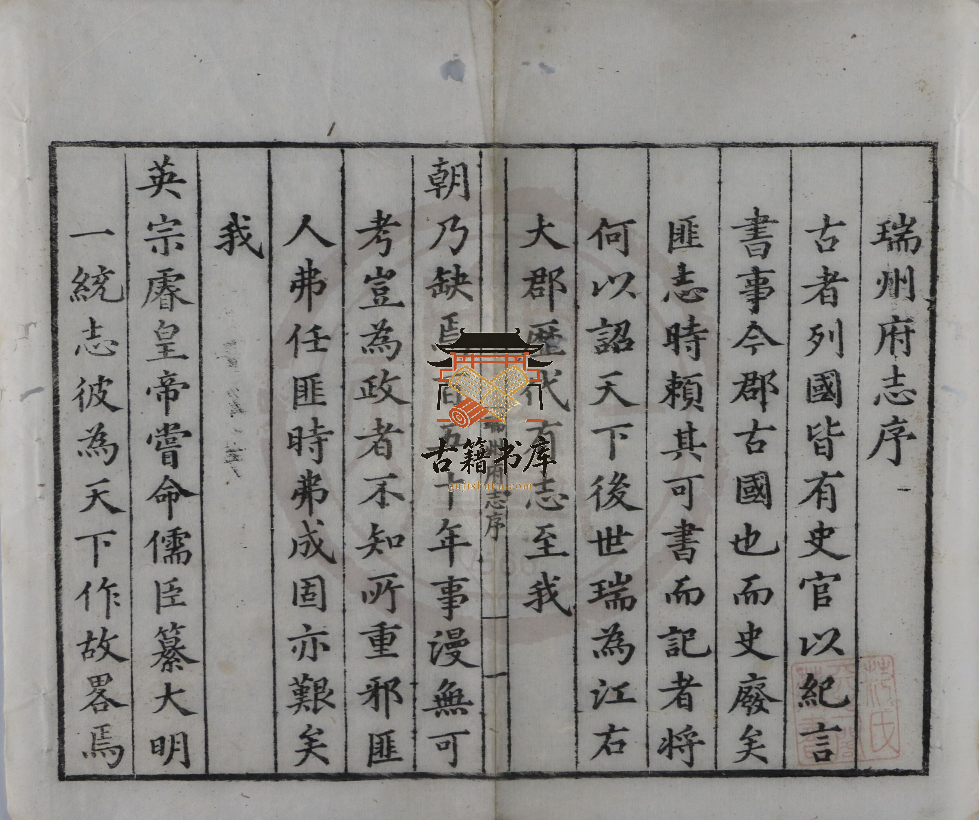 瑞州府志序
古者列國皆有史官以紀言
書事今郡古國也而史廢矣
匪志時頼其可書而記者將
何以詔天下後世瑞為江右
大郡歷代有志至我
朝乃缺焉百五十年事漫無可
考豈為政者不知所重邪匪
人弗任匪時弗成固亦艱矣
我
英宗睿皇帝嘗命儒臣纂大明
一統志彼為天下作故畧焉
志序
一
古籍书库